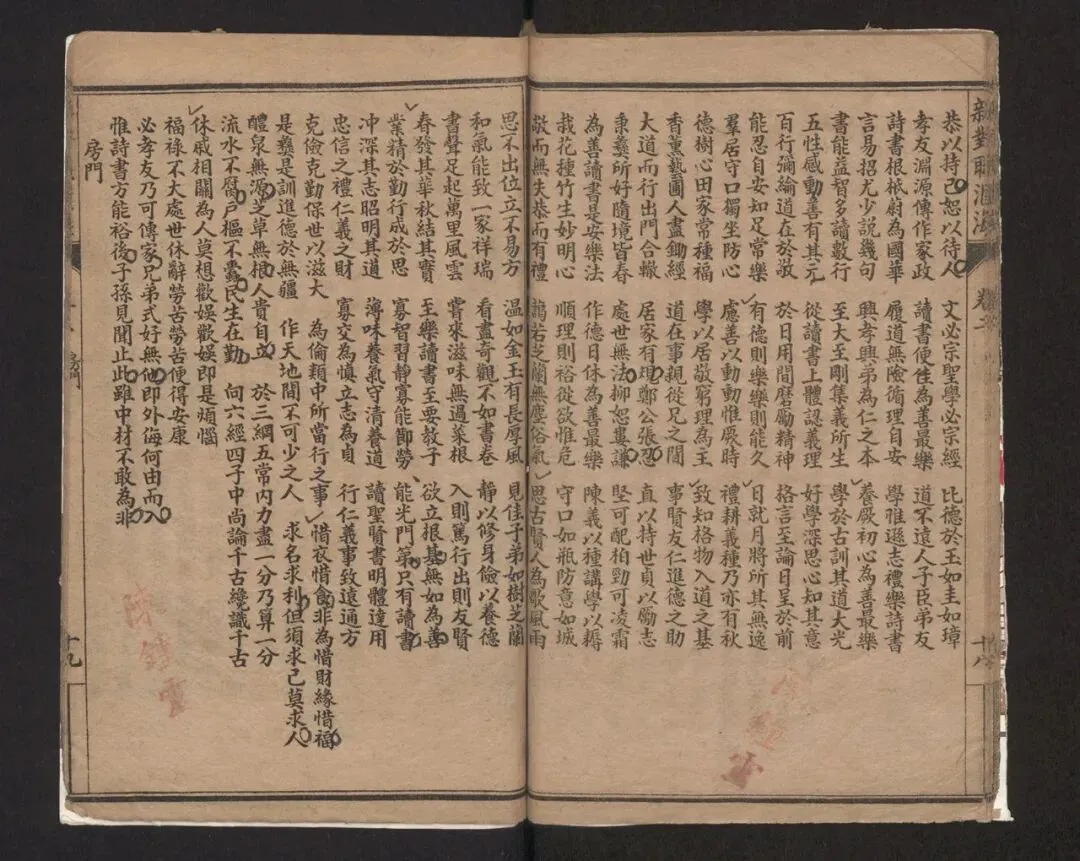 新對聯滙海
十八
恭以持己恕以待人 文必宗聖學必宗經 比德於玉如圭如璋
孝友淵源傳作家政 讀書便佳為善最樂 道不遠人子臣弟友
詩書根柢蔚為國華 履道無險循理自安 學惟遜志禮樂詩書
言易招尤少説幾句 興孝興弟為仁之本 養厥初心為善最樂
書能益智多讀數行 至大至剛集義所生 學於古訓其道大光
五性感動善有其元 從讀書上體認義理 好學深思心知其意
百行彌綸道在於敬 於日用間磨勵精神 格言至論日呈於前
能忍自安知足常樂 有德則樂樂則能久 日就月將所其無逸
羣居守口獨坐防心 處善以動動惟厥時 禮耕義種乃亦有秋
德樹心田家常種福 學以居敬窮理為主 致知格物入道之基
香薰藝圃人盡鋤經 道在事親從兄之間 事賢友仁進德之助
大道而行出門合轍 居家有理鄭公張忍 直以持世貞以勵志
秉彝所好隨境皆春 處世無法柳恕婁謙 堅可配柏勁可凌霜
為善讀書是安樂法 作德日休為善最樂 陳義以種講學以耨
栽花種竹生妙明心 順理則裕從欲惟危 守口如瓶防意如城
敬而無失恭而有禮 藹若芝蘭無塵俗氣 思古賢人為歌風雨
思不出位立不易方 温如金玉有長厚風 見佳子弟如樹芝蘭
和氣能致一家祥瑞 看盡奇觀不如書卷 靜以修身儉以養德
書聲足起萬里風雲 嘗來滋味無過菜根 入則篤行出則友賢
春發其華秋結其實 至樂讀書至要教子 欲立根基無如為善
業精於勤行成於思 寡智習靜寡能節勞 能光門第只有讀書
冲深其志昭明其道 薄味養氣守清養道 讀聖賢書明體達用
忠信之禮仁義之財 寡交為慎立志為貞 行仁義事致遠通方
克儉克勤保世以滋大 為倫類中所當行之事 惜衣惜食非為惜財緣惜福
是彝是訓進德於無疆 作天地間不可少之人 求名求利但須求己莫求人
醴泉無源芝草無根人貴自立 於三綱五常内力盡一分乃算一分
流水不腐户樞不蠹民生在勤 向六經四子中尚論千古纔識千古
休戚相關為人莫想歡娱歡娱即是煩惱
福禄不大處世休辭勞苦勞苦便得安康
必孝友乃可傳家兄弟式好無他即外侮何由而入
惟詩書方能裕後子孫見聞止此雖中材不敢為非
房門
房門
十九